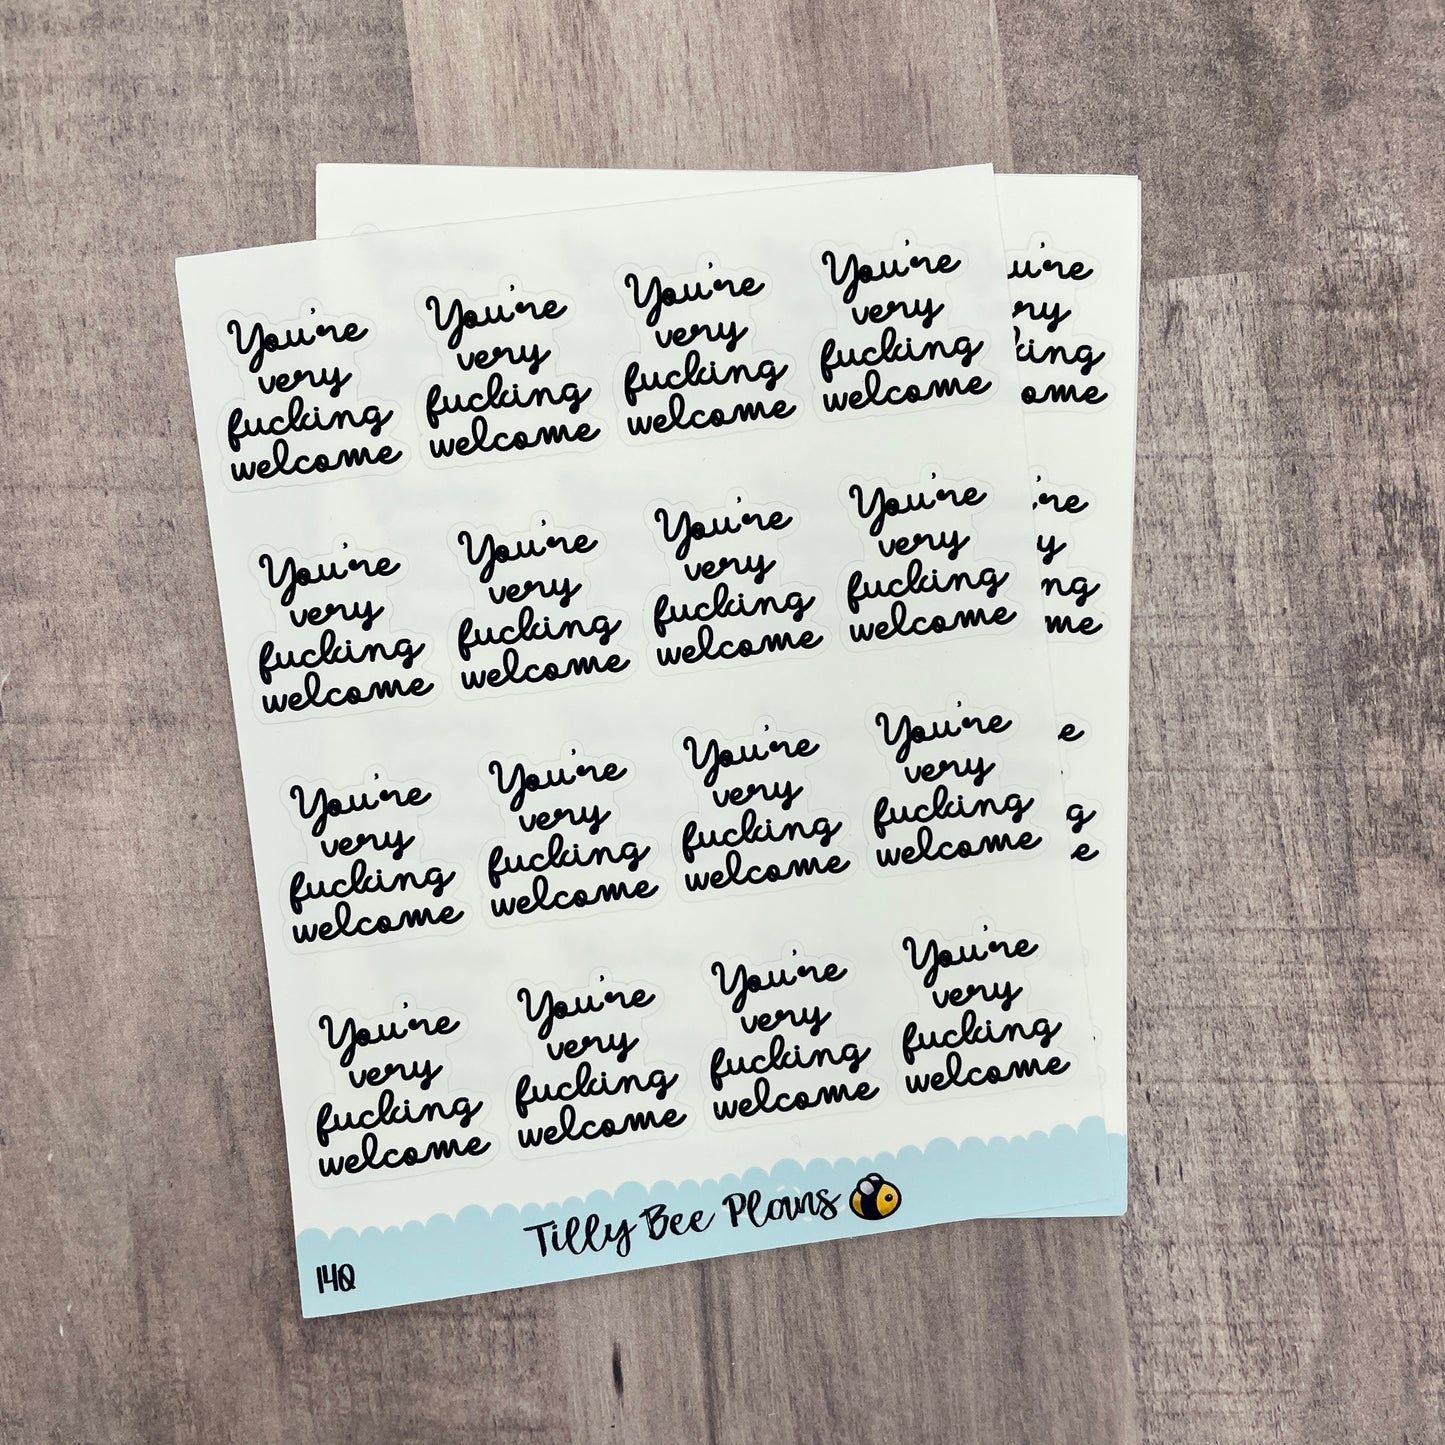 You're
very
fucking
welcome
You're
very
fucking
welcome
You're
very
fucking
welcome
You're
very
fucking
welcome
You're
very
fucking
welcome
You're
very
fucking
welcome
You're
very
fucking
welcome
You're
very
fucking
welcome
You're
very
fucking
welcome
You're
very
fucking
welcome
You're
very
fucking
welcome
You're
very
fucking
welcome
You're
very
fucking
welcome
You're
very
fucking
welcome
You're
very
fucking
welcome
You're
very
fucking
welcome
Tilly Bee Plans
14Q